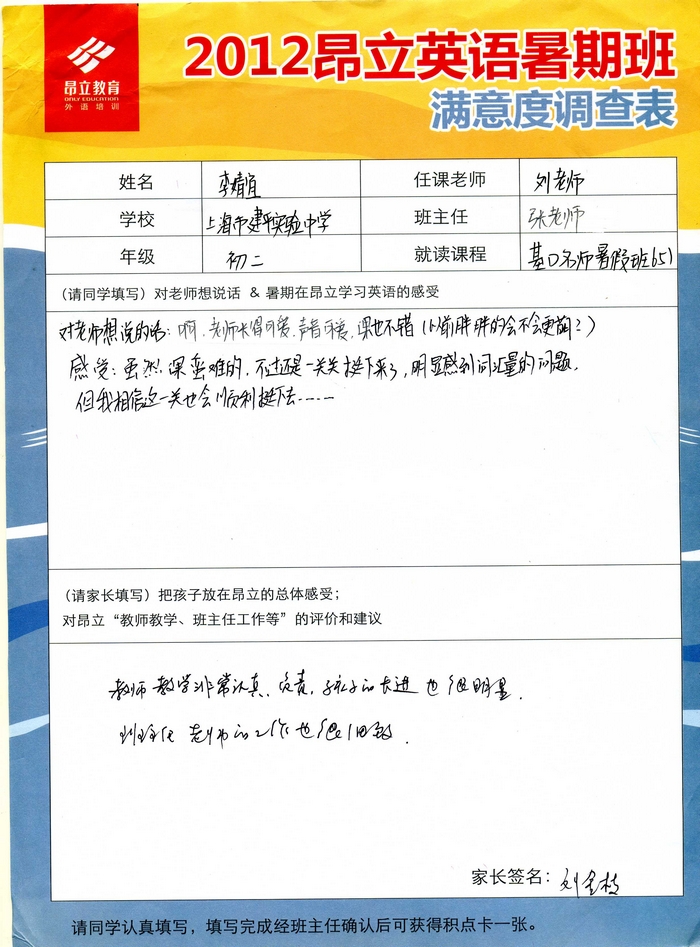 昂立教育
ONLY EDUCATION
外语培训
2012昂立英语暑期班
满意度调查表
姓名 李婧宜 任课老师 刘老师
学校 上海市建平实验中学 班主任 张老师
年级 初二 就读课程 基口名师暑假班(5)
(请同学填写)对老师想说话 & 暑期在昂立学习英语的感受
对老师想说的话:啊,老师长得可爱,声音可爱,课也不错(以前胖胖的会不会更萌?)
感受:虽然课蛮难的,不过还是一关关挺下来了,明显感到词汇量的问题,
但我相信这一关也会顺利挺下去……
(请家长填写)把孩子放在昂立的总体感受;
对昂立“教师教学、班主任工作等”的评价和建议
教师教学非常认真、负责,孩子的长进也很明显.
班主任老师的工作也很细致.
家长签名:刘金枝
请同学认真填写,填写完成经班主任确认后可获得积点卡一张。